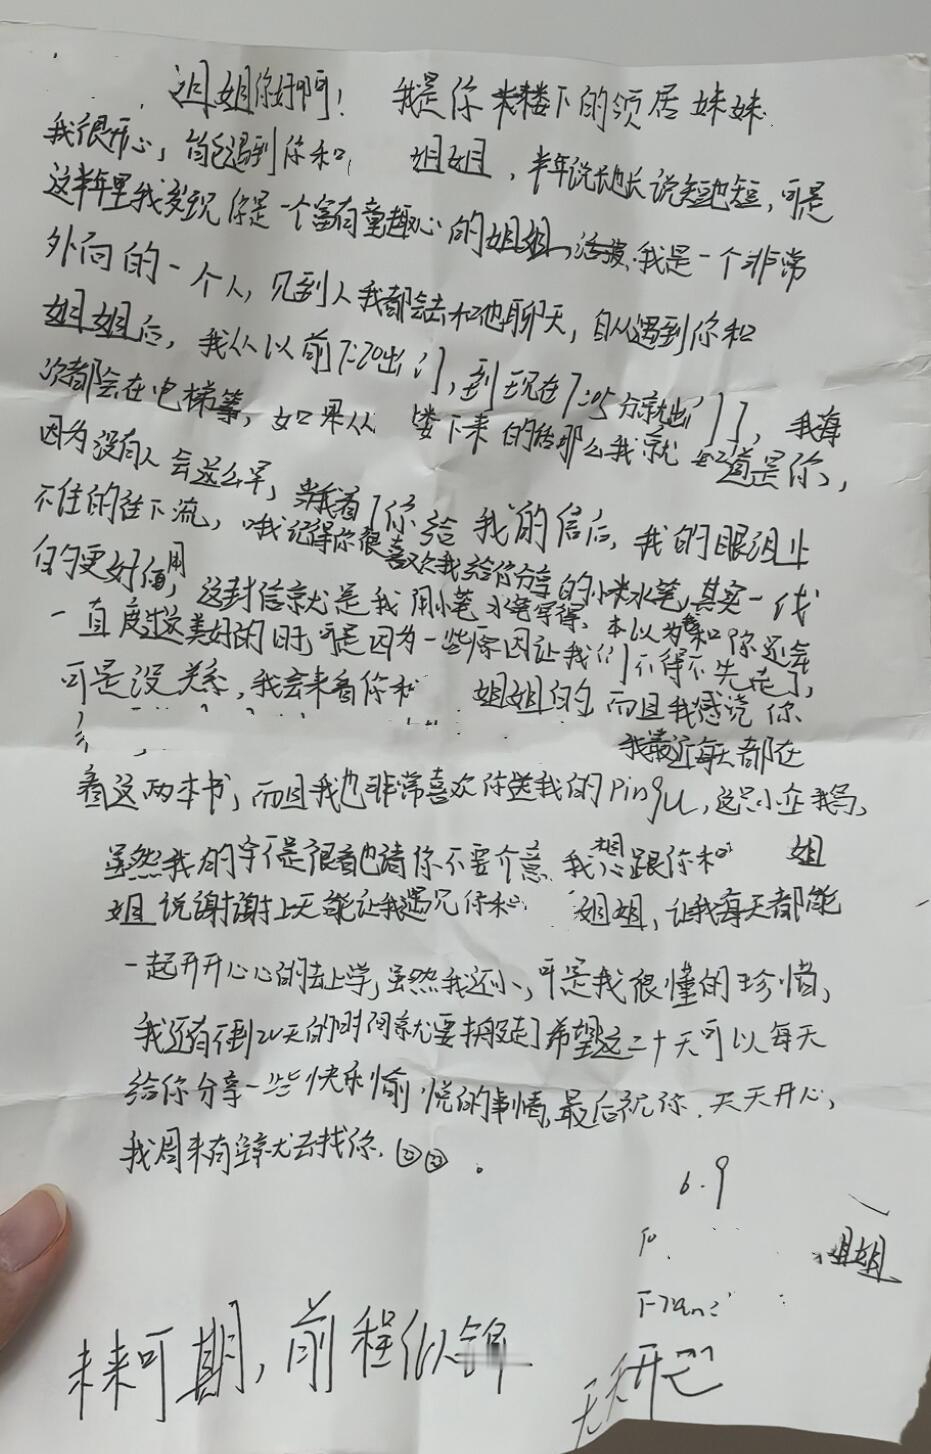 姐姐你好啊! 我是你楼下的领居妹妹.
我很开心,能遇到你和 姐姐,半年说长也长说短也短,可是
这半年里我发现你是一个富有童趣心的姐姐,活泼.我是一个非常
外向的一个人,见到人我都会去和他聊天,自从遇到你和
姐姐后,我从以前7:20出门,到现在7:05分就出门了,我每
次都会在电梯等,如果从 楼下来的话那么我就知道是你,
因为没有人会这么早,当我看了你给我的信后,我的眼泪止
不住的往下流,哦我记得你很喜欢我给你分享的小米水笔,其实一代
的更好用,这封信就是我用小笔水笔写得,本以为会和你还会
一直度过这美好的时,可是因为一些原因让我们不得不先走了,
可是没关系,我会来看你和 姐姐的而且我感觉你
我最近每天都在
看这两本书,而且我也非常喜欢你送我的Pingu,这只小企鹅,
虽然我的字不是很看也请你不要介意.我想跟你和 姐
姐说谢谢上天能让我遇见你和 姐姐,让我每天都能
一起开开心心的去上学,虽然我还小,可是我很懂的珍惜,
我还有不到20天的时间就要搬走了希望这二十天可以每天
给你分享一些快乐愉悦的事情,最后祝你.天天开心,
我周末有空就去找你.
6.9
姐姐
未来可期,前程似锦